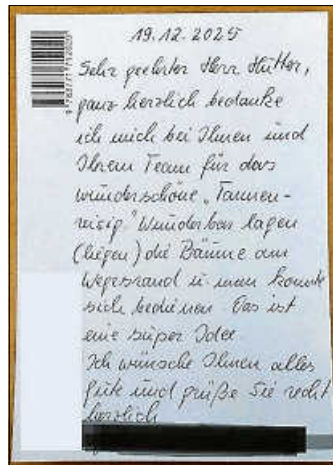 19.12.2025
Sehr geehrter Herr Hütter,
ganz herzlich bedanke
ich mich bei Ihnen und
Ihrem Team für das
wunderschöne „Tannen-
reisig". Wunderbar lagen
(liegen) die Bäume am
Wegesrand u. man konnte
sich bedienen. Das ist
eine super Idee.
Ich wünsche Ihnen alles
gute und grüße Sie recht
herzlich